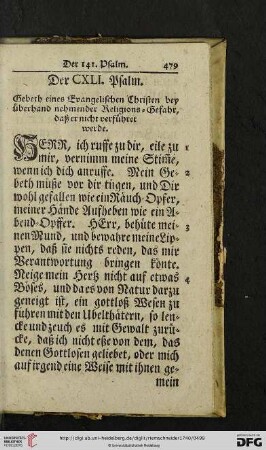 Der 141. Psalm. 479
Der CXLI. Psalm.
Gebeth eines Evangelischen Christen bey
überhand nehmender Religions-Gefahr,
daß er nicht verführet
werde.
HERR, ich ruffe zu dir, eile zu 1
mir, vernimm meine Stim̃e,
wenn ich dich anruffe. Mein Ge- 2
beth müße vor dir tügen, und Dir
wohl gefallen wie ein Räuch-Opfer,
meiner Hände Aufheben wie ein A-
bend-Opffer. HErr, behüte mei- 3
nen Mund, und bewahre meine Lip-
pen, daß sie nichts reden, das mir
Verantwortung bringen könte.
Neige mein Hertz nicht auf etwas 4
Böses, und da es von Natur darzu
geneigt ist, ein gottloß Wesen zu
führen mit den Ubelthätern, so len-
cke und zeuch es mit Gewalt zurü-
cke, daß ich nicht eße von dem, das
denen Gottlosen geliebet, oder mich
auf irgend eine Weise mit ihnen ge-
mein
UNIVERSITÄTS-
BIBLIOTHEK
HEIDELBERG
http://digi.ub.uni-heidelberg.de/diglit/riemschneider1740/0499
© Universitätsbibliothek Heidelberg
gefördert durch die
DFG